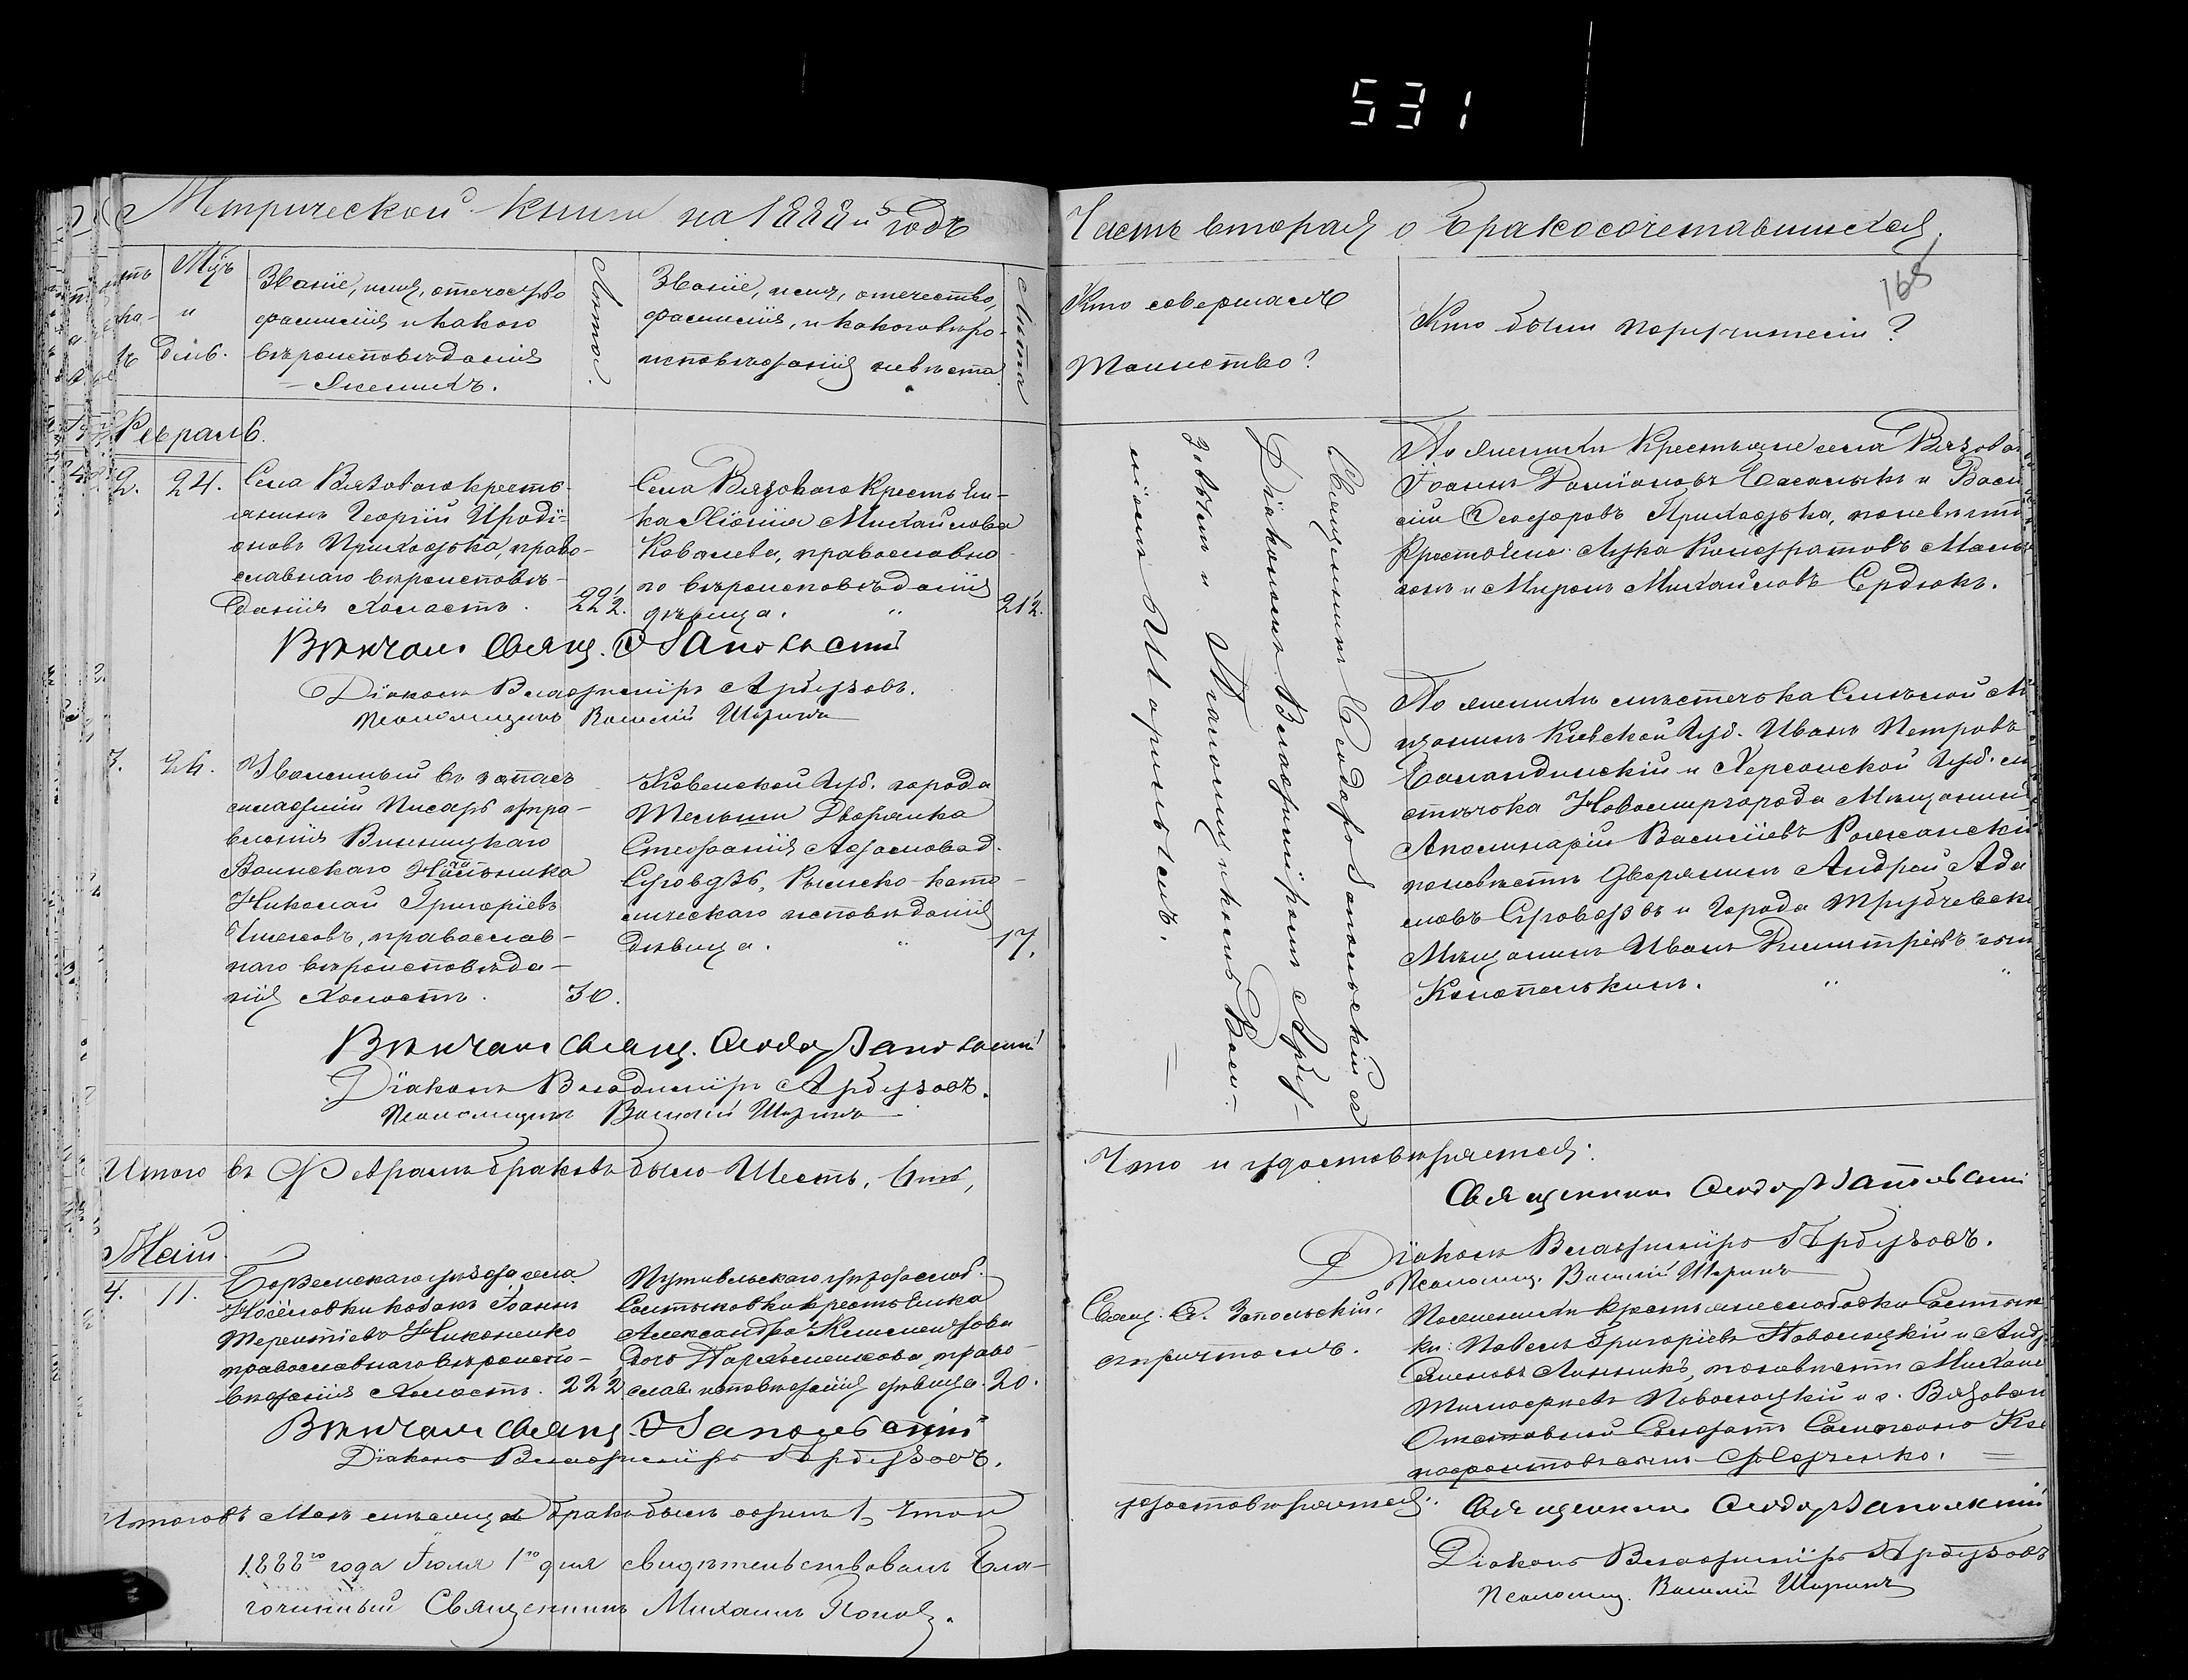 531
Метрической книги на 1888й годъ
Мѣц.
и
день.
Званіе, имя, отечество
фамилія и какого
вѣроисповѣданія
Женихъ.
Лѣта.
Званіе, имя, отечество,
фамилія, и какого вѣро-
исповѣданія невѣста
Лѣта
Февраль.
2. 24.
Села Вязоваго кресть-
янинъ Георгій Иродi-
оновъ Приходька, право-
славнаго вѣроисповѣ-
данія холостъ. 22½.
Села Вязоваго Крестьян-
ка Михайлова
Ковалева, православна-
го вѣроисповѣданія
дѣвица. " 21½.
Вѣнчалъ Свящ. Ѳ Запольскій
Діаконъ Владиміръ Арбузовъ.
Псаломщикъ Василій Ширинъ
3. 24.
Уволенный въ запасъ
младшій Писарь упра-
вленія Винницкаго
Воинскаго Начальника
Николай Григоріевъ
православ-
наго вѣроисповѣда-
нія Холостъ. 30.
Ковенской Губ. города
Тельши Дворянка
Стефанія Адамова д.
Римско-като-
лическаго исповѣданія
дѣвица. " 17.
Вѣнчалъ Свящ. Ѳеодоръ Запольскій
Діаконъ Владиміръ Арбузовъ.
Псаломщикъ Василій Ширинъ
Итого въ Февралѣ браковъ было Шесть, 6ть,
Май.
4. 11.
Борзенскаго уѣзда села
козакъ Іоаннъ
Терентіевъ Никоненко
православнаго вѣроиспо-
вѣданія Холостъ. 22½
Путивльскаго уѣзда слоб.
крестьянка
Александра Климентова
дочь Пархоменкова, право-
слав. исповѣданія дѣвица. 20.
Вѣнчалъ Свящ. Ѳ Запольскій
Діаконъ Владиміръ Арбузовъ.
Итого въ Маѣ мѣсяцѣ бракъ былъ одинъ 1, что и
1888го года Іюля 1го дня свидѣтельствовалъ Бла-
гочинный Священникъ Михаилъ Поповъ.
Часть вторая о бракосочетавшихся.
168
Кто совершалъ
Таинство?
Кто были поручители?
Священникъ Ѳеодоръ Запольскій съ
Діакономъ Владиміромъ Арбу-
зовымъ и Псаломщикомъ Васи-
ліемъ Ширинымъ.
По женихѣ Крестьяне села Вязоваго
Іоаннъ Даміановъ и Васи
лій Ѳеодоровъ Приходька, по невѣстѣ
Крестьяне: Лука Кондратовъ
и Миронъ Михайловъ Сердюкъ.
По женихѣ мѣстечка Смѣлой Мѣ
щанинъ Кіевской Губ. Иванъ Петровъ
и Херсонской Губ. мѣ
стечка Новомиргорода Мѣщанинъ
Аполинарій Василіевъ
по невѣстѣ Дворянинъ Андрей Ада
мовъ и Города Трубчевска
Мѣщанинъ Иванъ Димитріевъ сынъ
Конопелькинъ. "
Что и удостовѣряется:
Священникъ Ѳеодоръ Запольскій
Діаконъ Владиміръ Арбузовъ.
Псаломщ. Василій Ширинъ
Свящ. Ѳ. Запольскій.
съ причтомъ.
По женихѣ крестьяне слободы
ки: Павелъ Григоріевъ Новосіоцкій и Андр
Семеновъ по невѣстѣ Михаилъ
Тимоѳеевъ Новосіоцкій и с. Вязоваго
Отставной Солдатъ
удостовѣряется:
Священникъ Ѳеодоръ Запольскій
Діаконъ Владиміръ Арбузовъ
Псаломщ. Василій Ширинъ